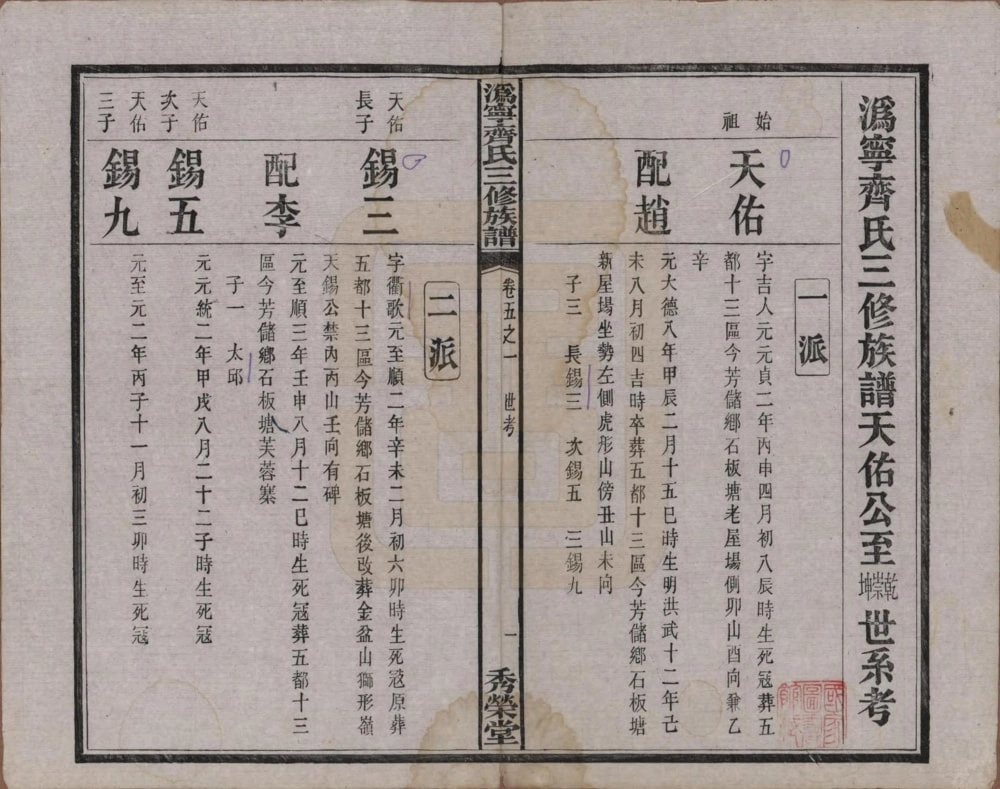 溈寧齊氏三修族譜天佑公至乾榮坤世系考
一派
始祖
天佑
字吉人元元貞二年丙申四月初八辰時生死冦葬五
都十三區今芳儲鄉石板塘老屋場側卯山酉向兼乙
辛
配趙
元大德八年甲辰二月十五巳時生明洪武十二年己
未八月初四吉時卒葬五都十三區今芳儲鄉石板塘
新屋場坐勢左側虎形山傍丑山未向
子三 長錫三 次錫五 三錫九
溈寧齊氏三修族譜
卷五之一 世考
一
秀榮堂
二派
天佑長子
錫三
字衢歌元至順二年辛未二月初六卯時生死冦原葬
五都十三區今芳儲鄉石板塘後改葬金盆山獅形嶺
天錫公禁內丙山壬向有碑
配李
元至順三年壬申八月十二巳時生死冦葬五都十三
區今芳儲鄉石板塘芙蓉寨
子一 太邱
天佑次子
錫五
元元統二年甲戌八月二十二子時生死冦
天佑三子
錫九
元至元二年丙子十一月初三卯時生死冦